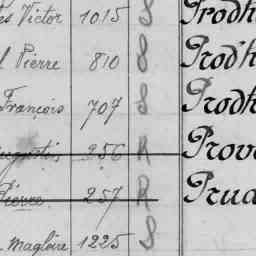 es Victor 1015 S Prodh
l Pierre 810 S Prod'h
François 707 S Prodh
Augustin 256 R Prov
Pierre 257 R Prud
Magloire 1225 S